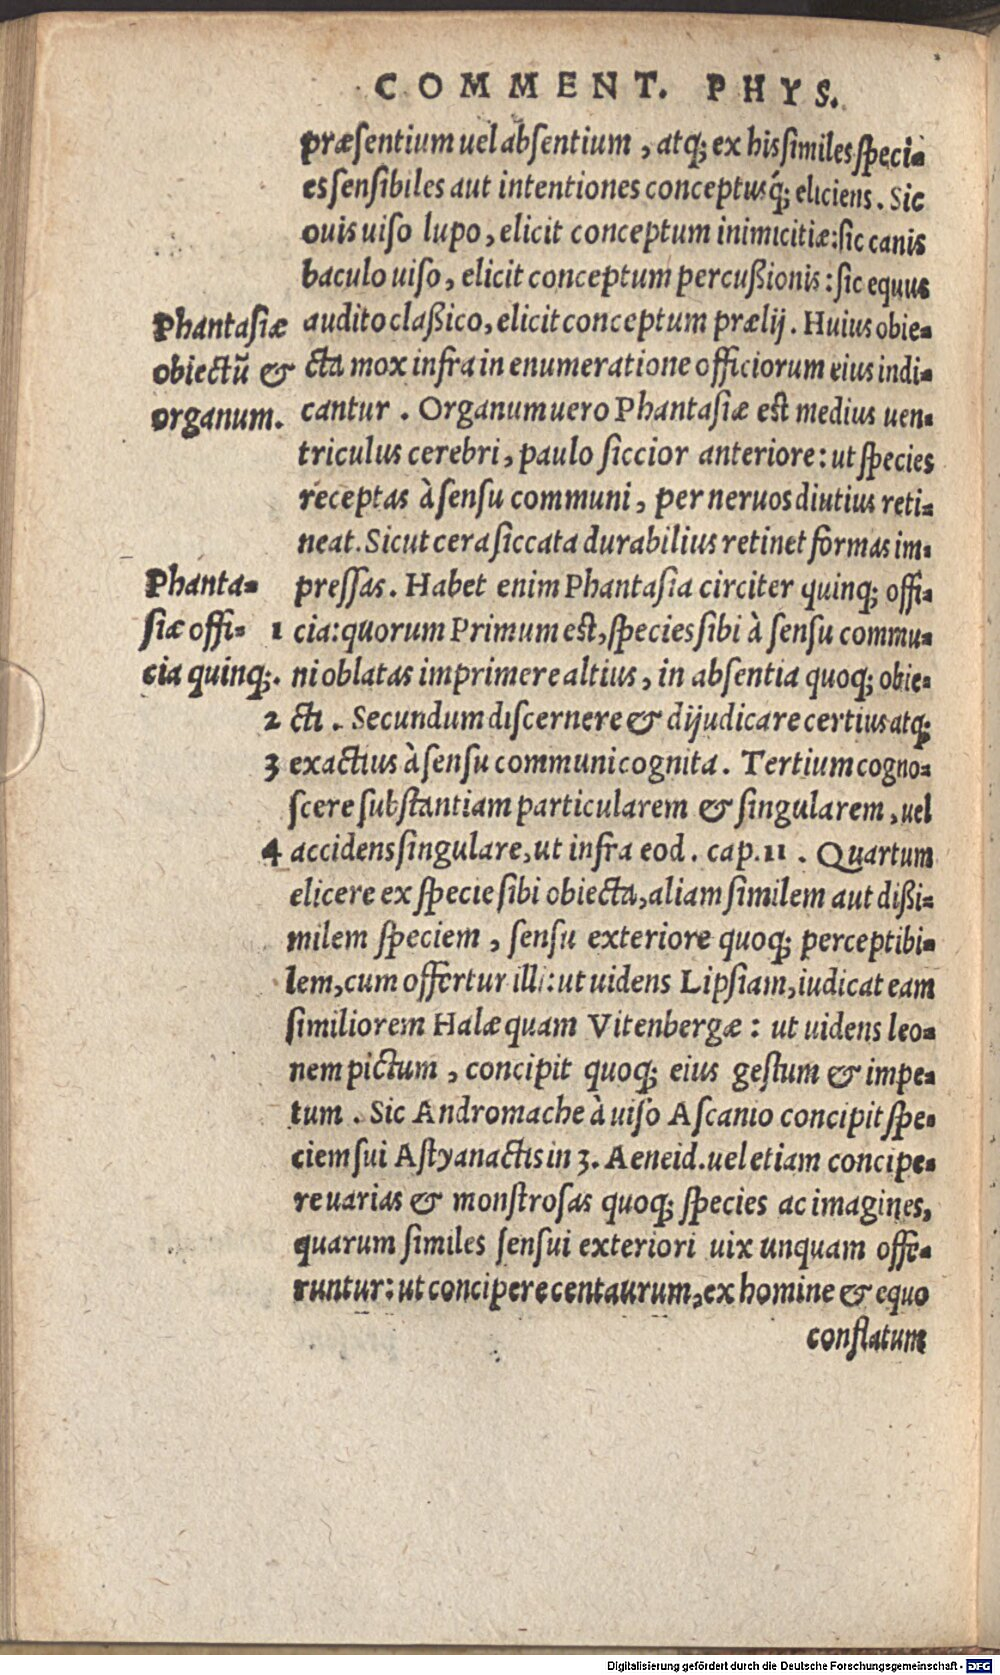 COMMENT. PHYS.
præsentium uel absentium, atq; ex his similes speci-
es sensibiles aut intentiones conceptusq́; eliciens. Sic
ouis uiso lupo, elicit conceptum inimicitiæ: sic canis
baculo uiso, elicit conceptum percußionis: sic equus
Phantasiæ
obiectũ &
organum.
audito claßico, elicit conceptum prælij. Huius obie-
cta mox infra in enumeratione officiorum eius indi-
cantur. Organum uero Phantasiæ est medius uen-
triculus cerebri, paulo siccior anteriore: ut species
receptas à sensu communi, per neruos diutius reti-
neat. Sicut cera siccata durabilius retinet formas im-
Phanta-
siæ offi-
cia quinq;.
pressas. Habet enim Phantasia circiter quinq; offi-
1 cia: quorum Primum est, species sibi à sensu commu-
ni oblatas imprimere altius, in absentia quoq; obie-
2 cti. Secundum discernere & dijudicare certius atq;
3 exactius à sensu communi cognita. Tertium cogno-
scere substantiam particularem & singularem, uel
4 accidens singulare, ut infra eod. cap. 11. Quartum
elicere ex specie sibi obiecta, aliam similem aut dißi-
milem speciem, sensu exteriore quoq; perceptibi-
lem, cum offertur illi: ut uidens Lipsiam, iudicat eam
similiorem Halæ quam Vitenbergæ: ut uidens leo-
nem pictum, concipit quoq; eius gestum & impe-
tum. Sic Andromache à uiso Ascanio concipit spe-
ciem sui Astyanactis in 3. Aeneid. uel etiam concipe-
re uarias & monstrosas quoq; species ac imagines,
quarum similes sensui exteriori uix unquam offe-
runtur: ut concipere centaurum, ex homine & equo
conflatum
Digitalisierung gefördert durch die Deutsche Forschungsgemeinschaft - DFG